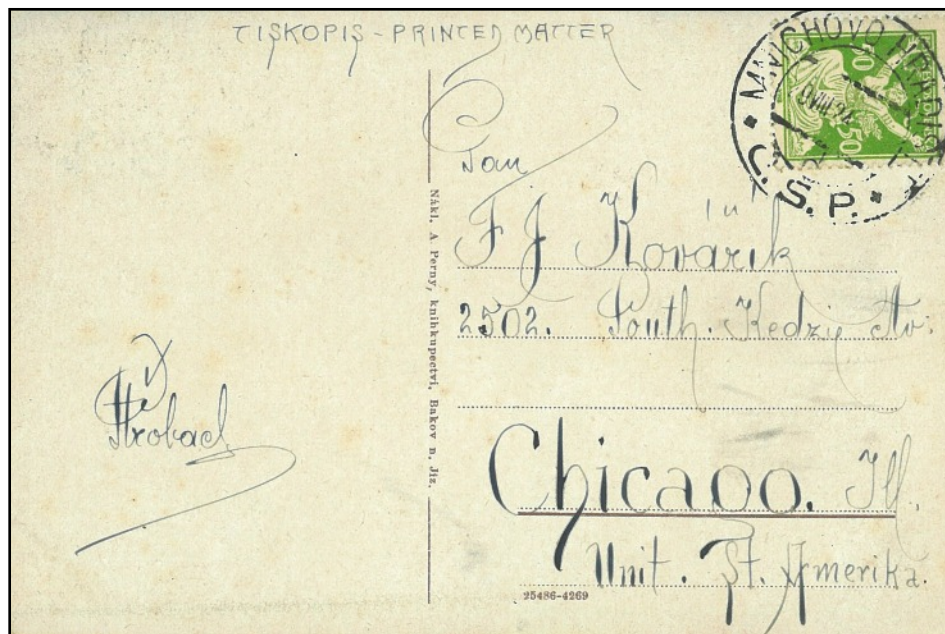 TISKOPIS - PRINTED MATTER
MNICHOVO HRADIŠ
Č.S.P.
50
Pan
F J Kovářík
2502. South. Kedzie Av.
Chicago. Ill.
Unit. St. Amerika.
Nákl. A. Perny, knihkupectví, Bakov n. Jiz.
25486-4269